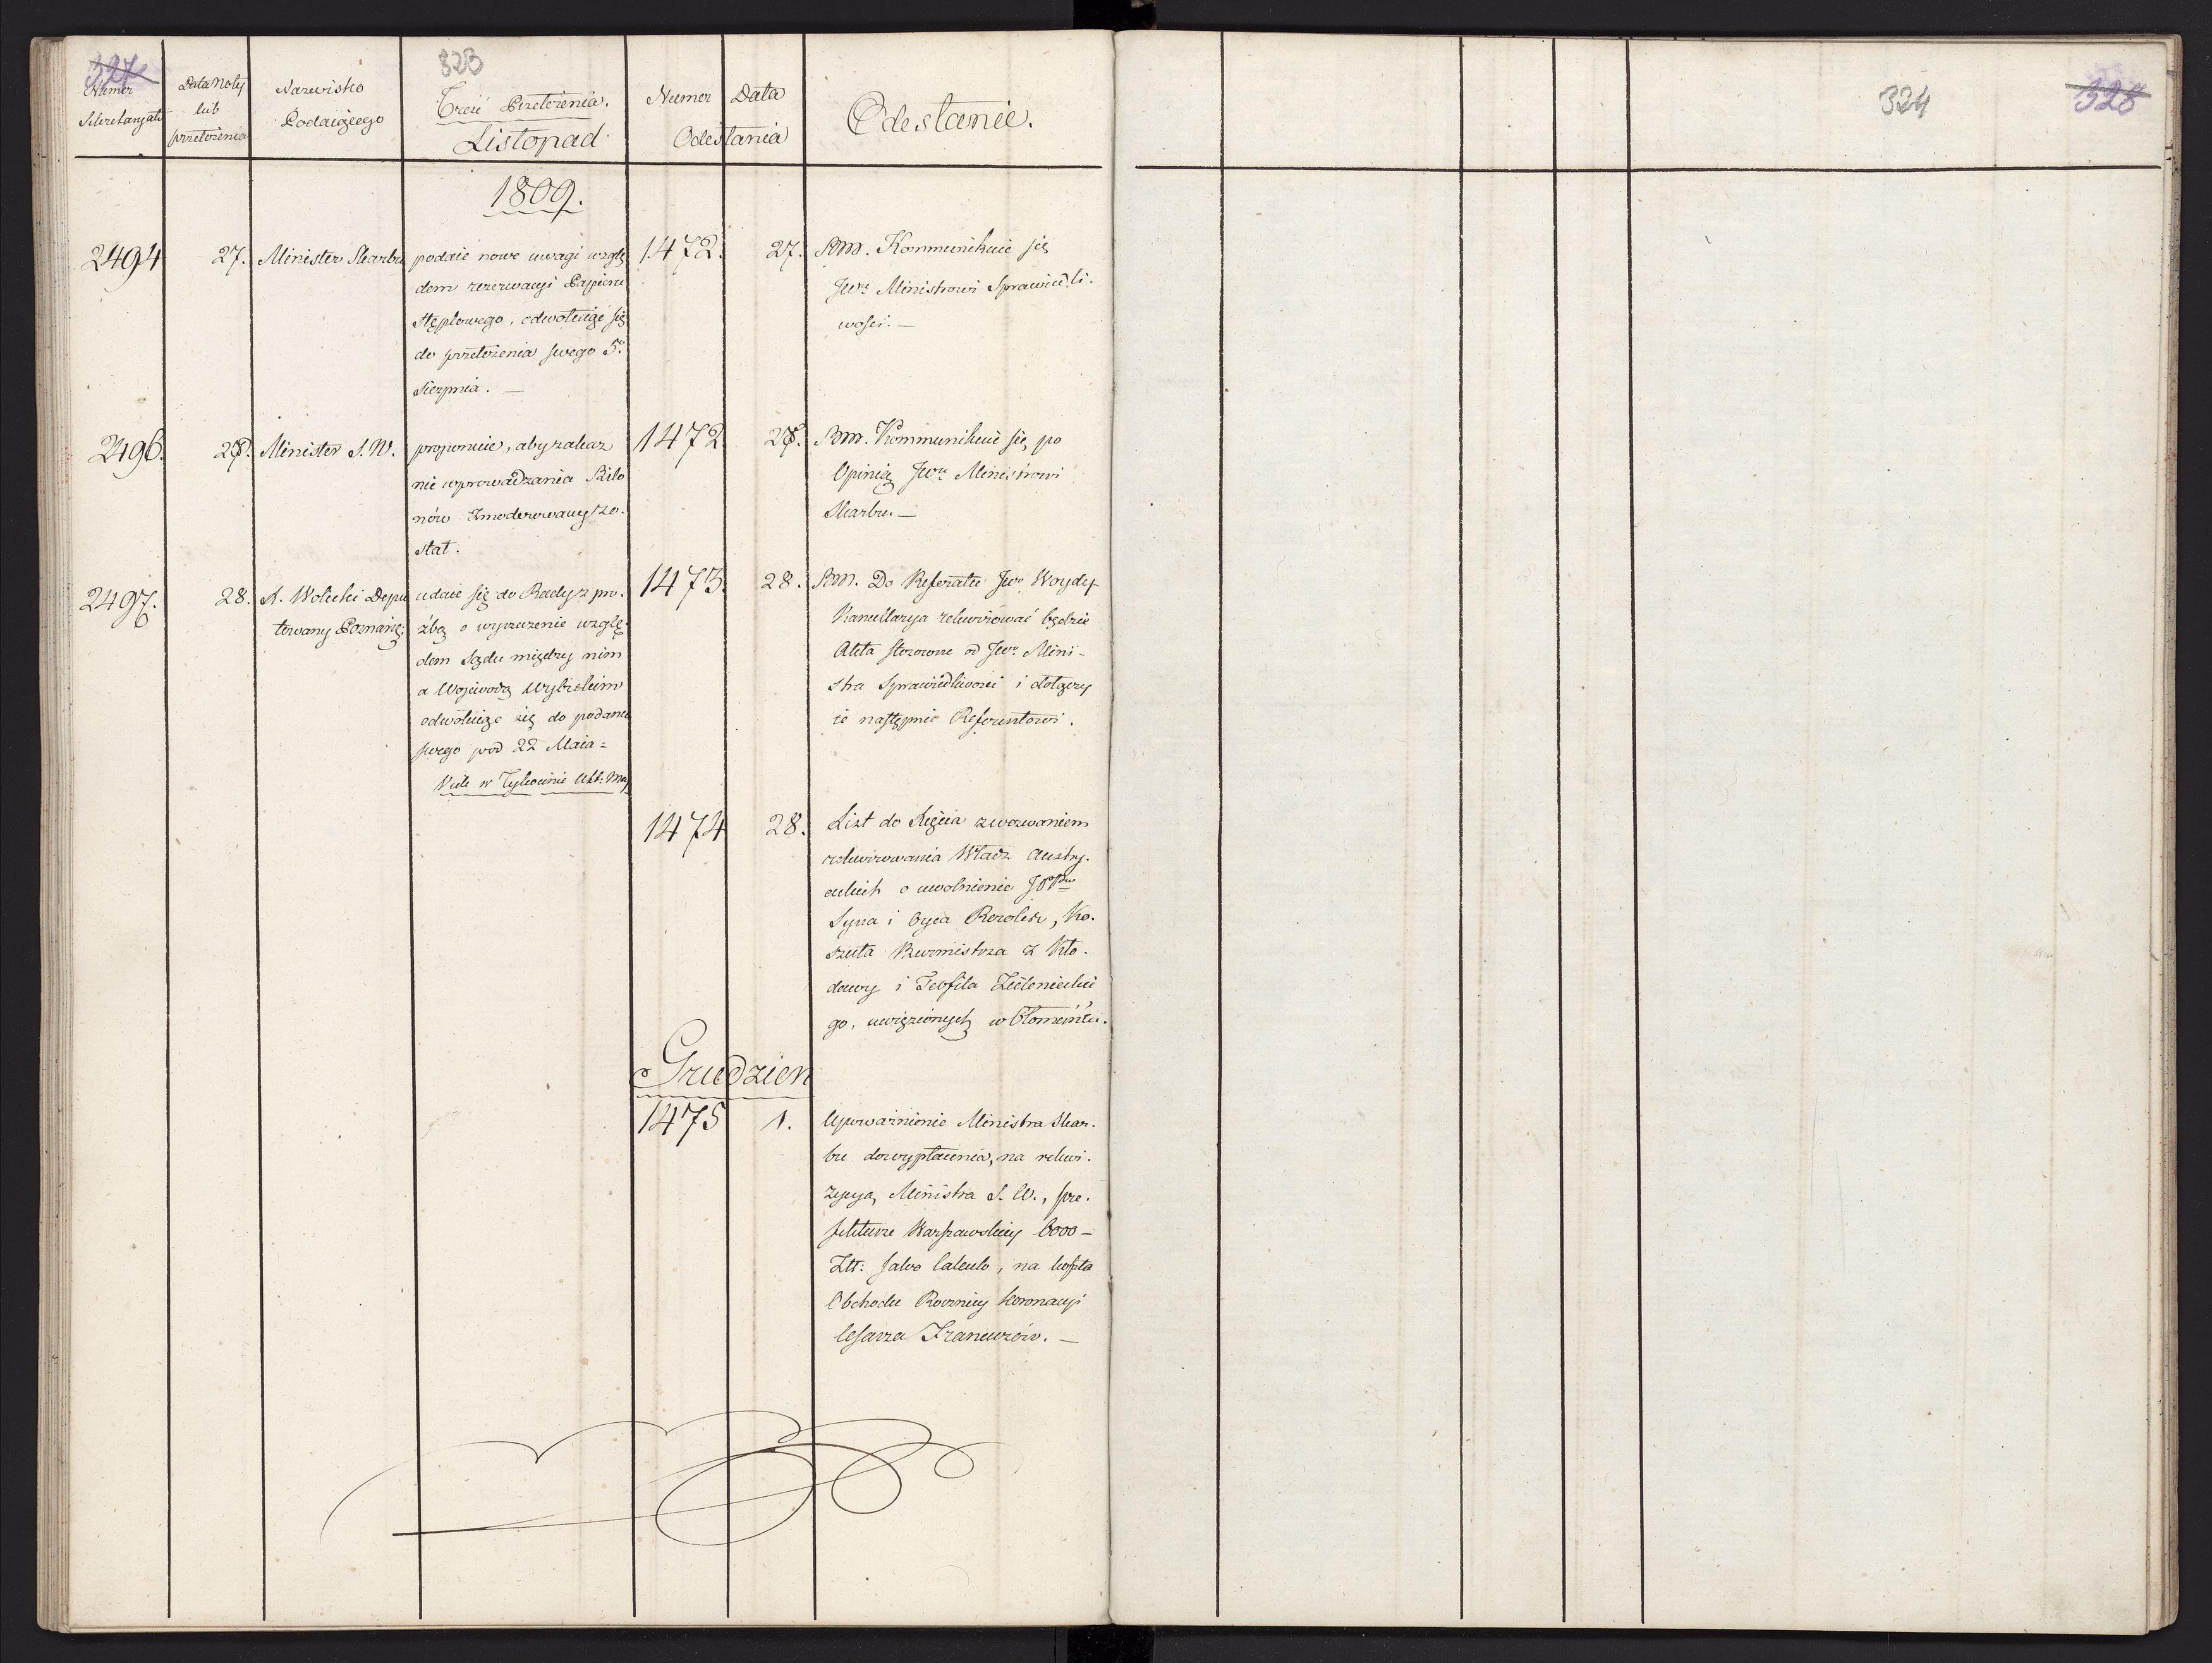 327
323
Numer
Sekretaryatu
Data Noty
lub
przełożenia
Nazwisko
Podaiącego
Treść Przełożenia.
Listopad
Numer Data
Odesłania
Odesłanie.
1809.
2494 27. Minister Skarbu
podaie nowe uwagi wzglę
dem rezerwacyi Papieru
Stęplowego, odwołuiąc się
do przełożenia swego 5.
Sierpnia. —
1472. 27.
Bm. Kommunikuie się
JWu Ministrowi Sprawiedli.
wości. —
2496. 28. Minister S. W.
proponuie, aby zakaz
nie wprowadzania Bilo
nów zmoderowany zo.
stał.
1472 28.
Bm. Kommunikuie się, po
Opinią JWu Ministrowi
Skarbu. —
2497. 28. X. Wolicki Depu
towany Poznańs:
udaie się do Rady z pro.
źbą o wyrzeczenie wzglę.
dem Sądu między nim
a Woiewodą Wybickim
odwołuiąc się do podania
swego pod 22 Maia =
Vide w Tykocinie
1473. 28.
Bm. Do Referatu JWo Woydy
Kancellarya rekwirować będzie
Akta stosowne od JWo Mini-
stra Sprawiedliwości i dołączy
ie następnie Referentowi.
1474 28.
List do Xięcia z wezwaniem
rekwirowania Władz Austry.
ackich o uwolnienie
Syna i Oyca, Ko.
szuta Burmistrza z Kło.
dawy i Teofila Zieleniecki
go, uwięzionych w Ołomuńcu.
Grudzien
1475 1.
Upoważnienie Ministra Skar.
bu do wypłacenia, na rekwi.
zycyą Ministra S. W., Pre.
fekturze Warszawskiey 6000 —
Złt: Salvo Calculo, na koszta
Obchodu Rocznicy Koronacyi
Cesarza Francuzów. —
324
328